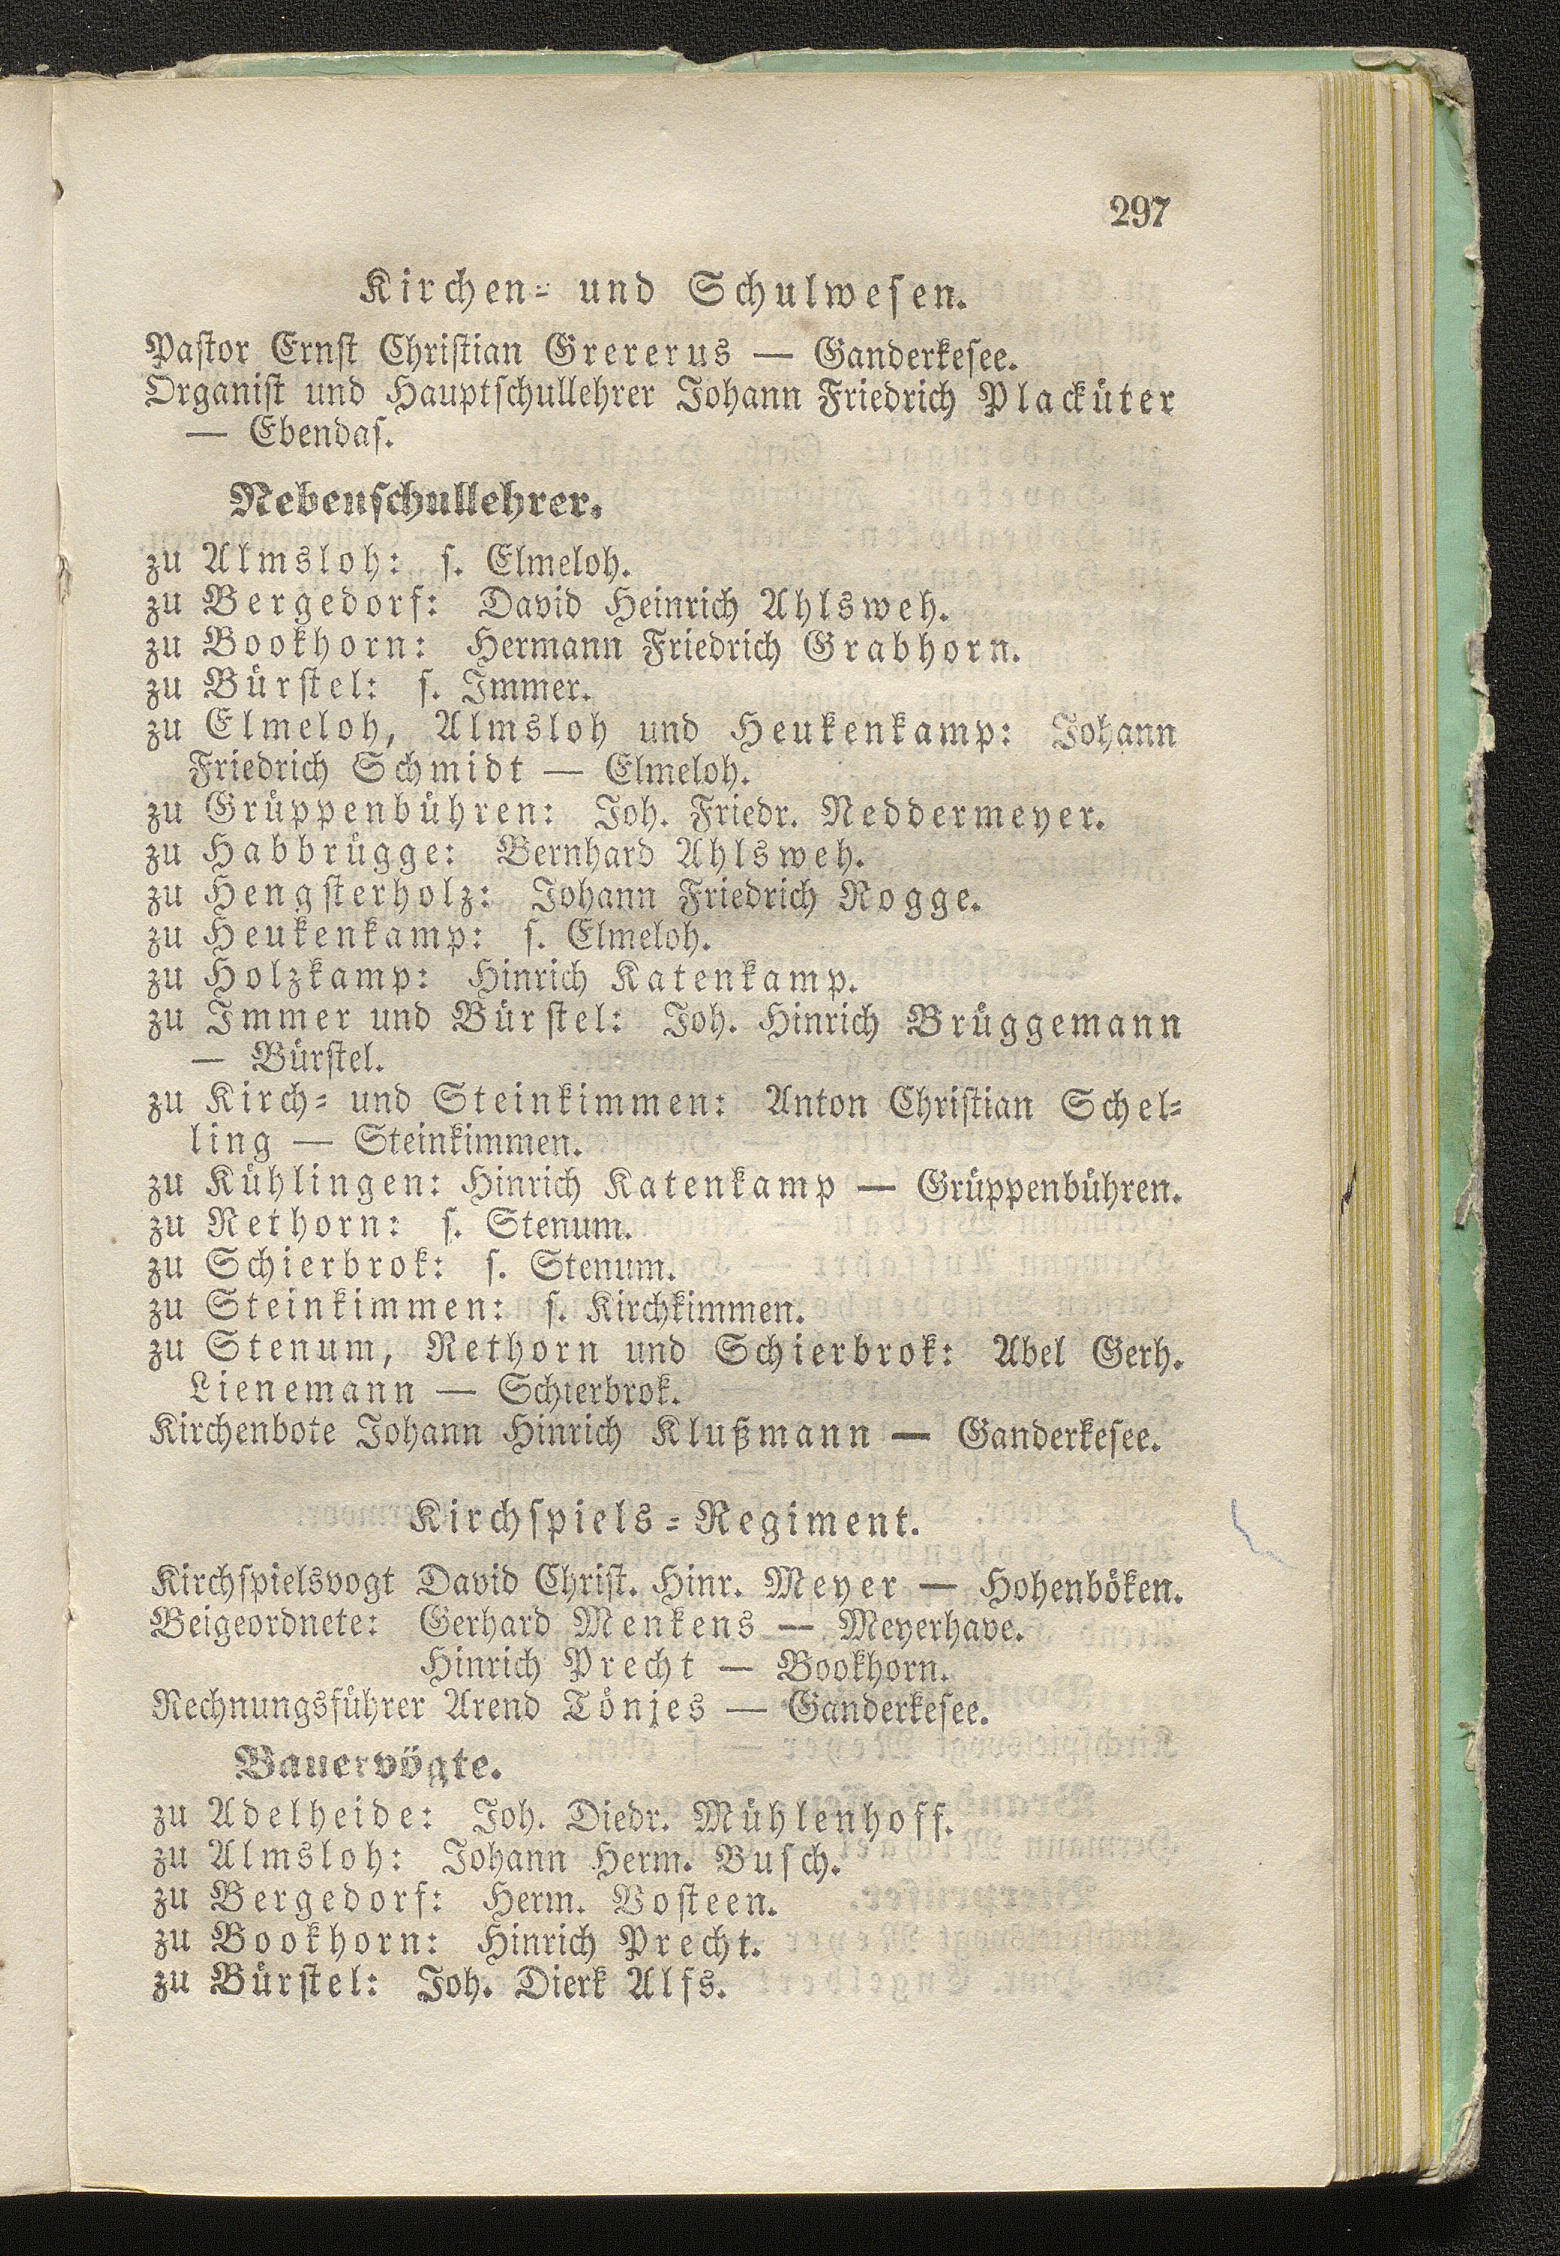 297
Kirchen= und Schulwesen.
Pastor Ernst Christian Grererus — Ganderkesee.
Organist und Hauptschullehrer Johann Friedrich Plackúter
— Ebendas.
Nebenschullehrer.
zu Almsloh: s. Elmeloh.
zu Bergedorf: David Heinrich Ahlsweh.
zu Bookhorn: Hermann Friedrich Grabhorn.
zu Bürstel: s. Immer.
zu Elmeloh, Almsloh und Heukenkamp: Johann
Friedrich Schmidt — Elmeloh.
zu Grüppenbühren: Joh. Friedr. Neddermeyer.
zu Habbrügge: Bernhard Ahlsweh.
zu Hengsterholz: Johann Friedrich Rogge.
zu Heukenkamp: s. Elmeloh.
zu Holzkamp: Hinrich Katenkamp.
zu Immer und Bürstel: Joh. Hinrich Brüggemann
— Bürstel.
zu Kirch= und Steinkimmen: Anton Christian Schel=
ling — Steinkimmen.
zu Kühlingen: Hinrich Katenkamp — Grüppenbühren.
zu Rethorn: s. Stenum.
zu Schierbrok: s. Stenum.
zu Steinkimmen: s. Kirchkimmen.
zu Stenum, Rethorn und Schierbrok: Abel Gerh.
Lienemann — Schierbrok.
Kirchenbote Johann Hinrich Klußmann — Ganderkesee.
Kirchspiels=Regiment.
Kirchspielsvogt David Christ. Hinr. Meyer — Hohenböken.
Beigeordnete: Gerhard Menkens — Meyerhave.
Hinrich Precht — Bookhorn.
Rechnungsführer Arend Tönjes — Ganderkesee.
Bauervögte.
zu Adelheide: Joh. Diedr. Mühlenhoff.
zu Almsloh: Johann Herm. Busch.
zu Bergedorf: Herm. Vosteen.
zu Bookhorn: Hinrich Precht.
zu Bürstel: Joh. Dierk Alfs.